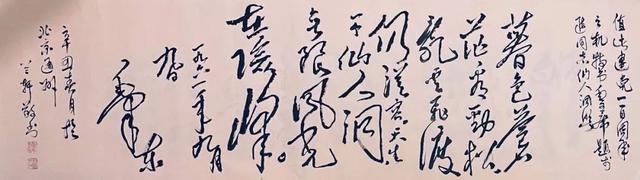 值此建党一百周年
之机特书毛主席题李
进同志仙人洞照
暮色苍
茫看劲松
乱云飞渡
仍从容天生
一个仙人洞
无限风光
在险峰。
一九六一年九月
九日
毛泽东
北京通州